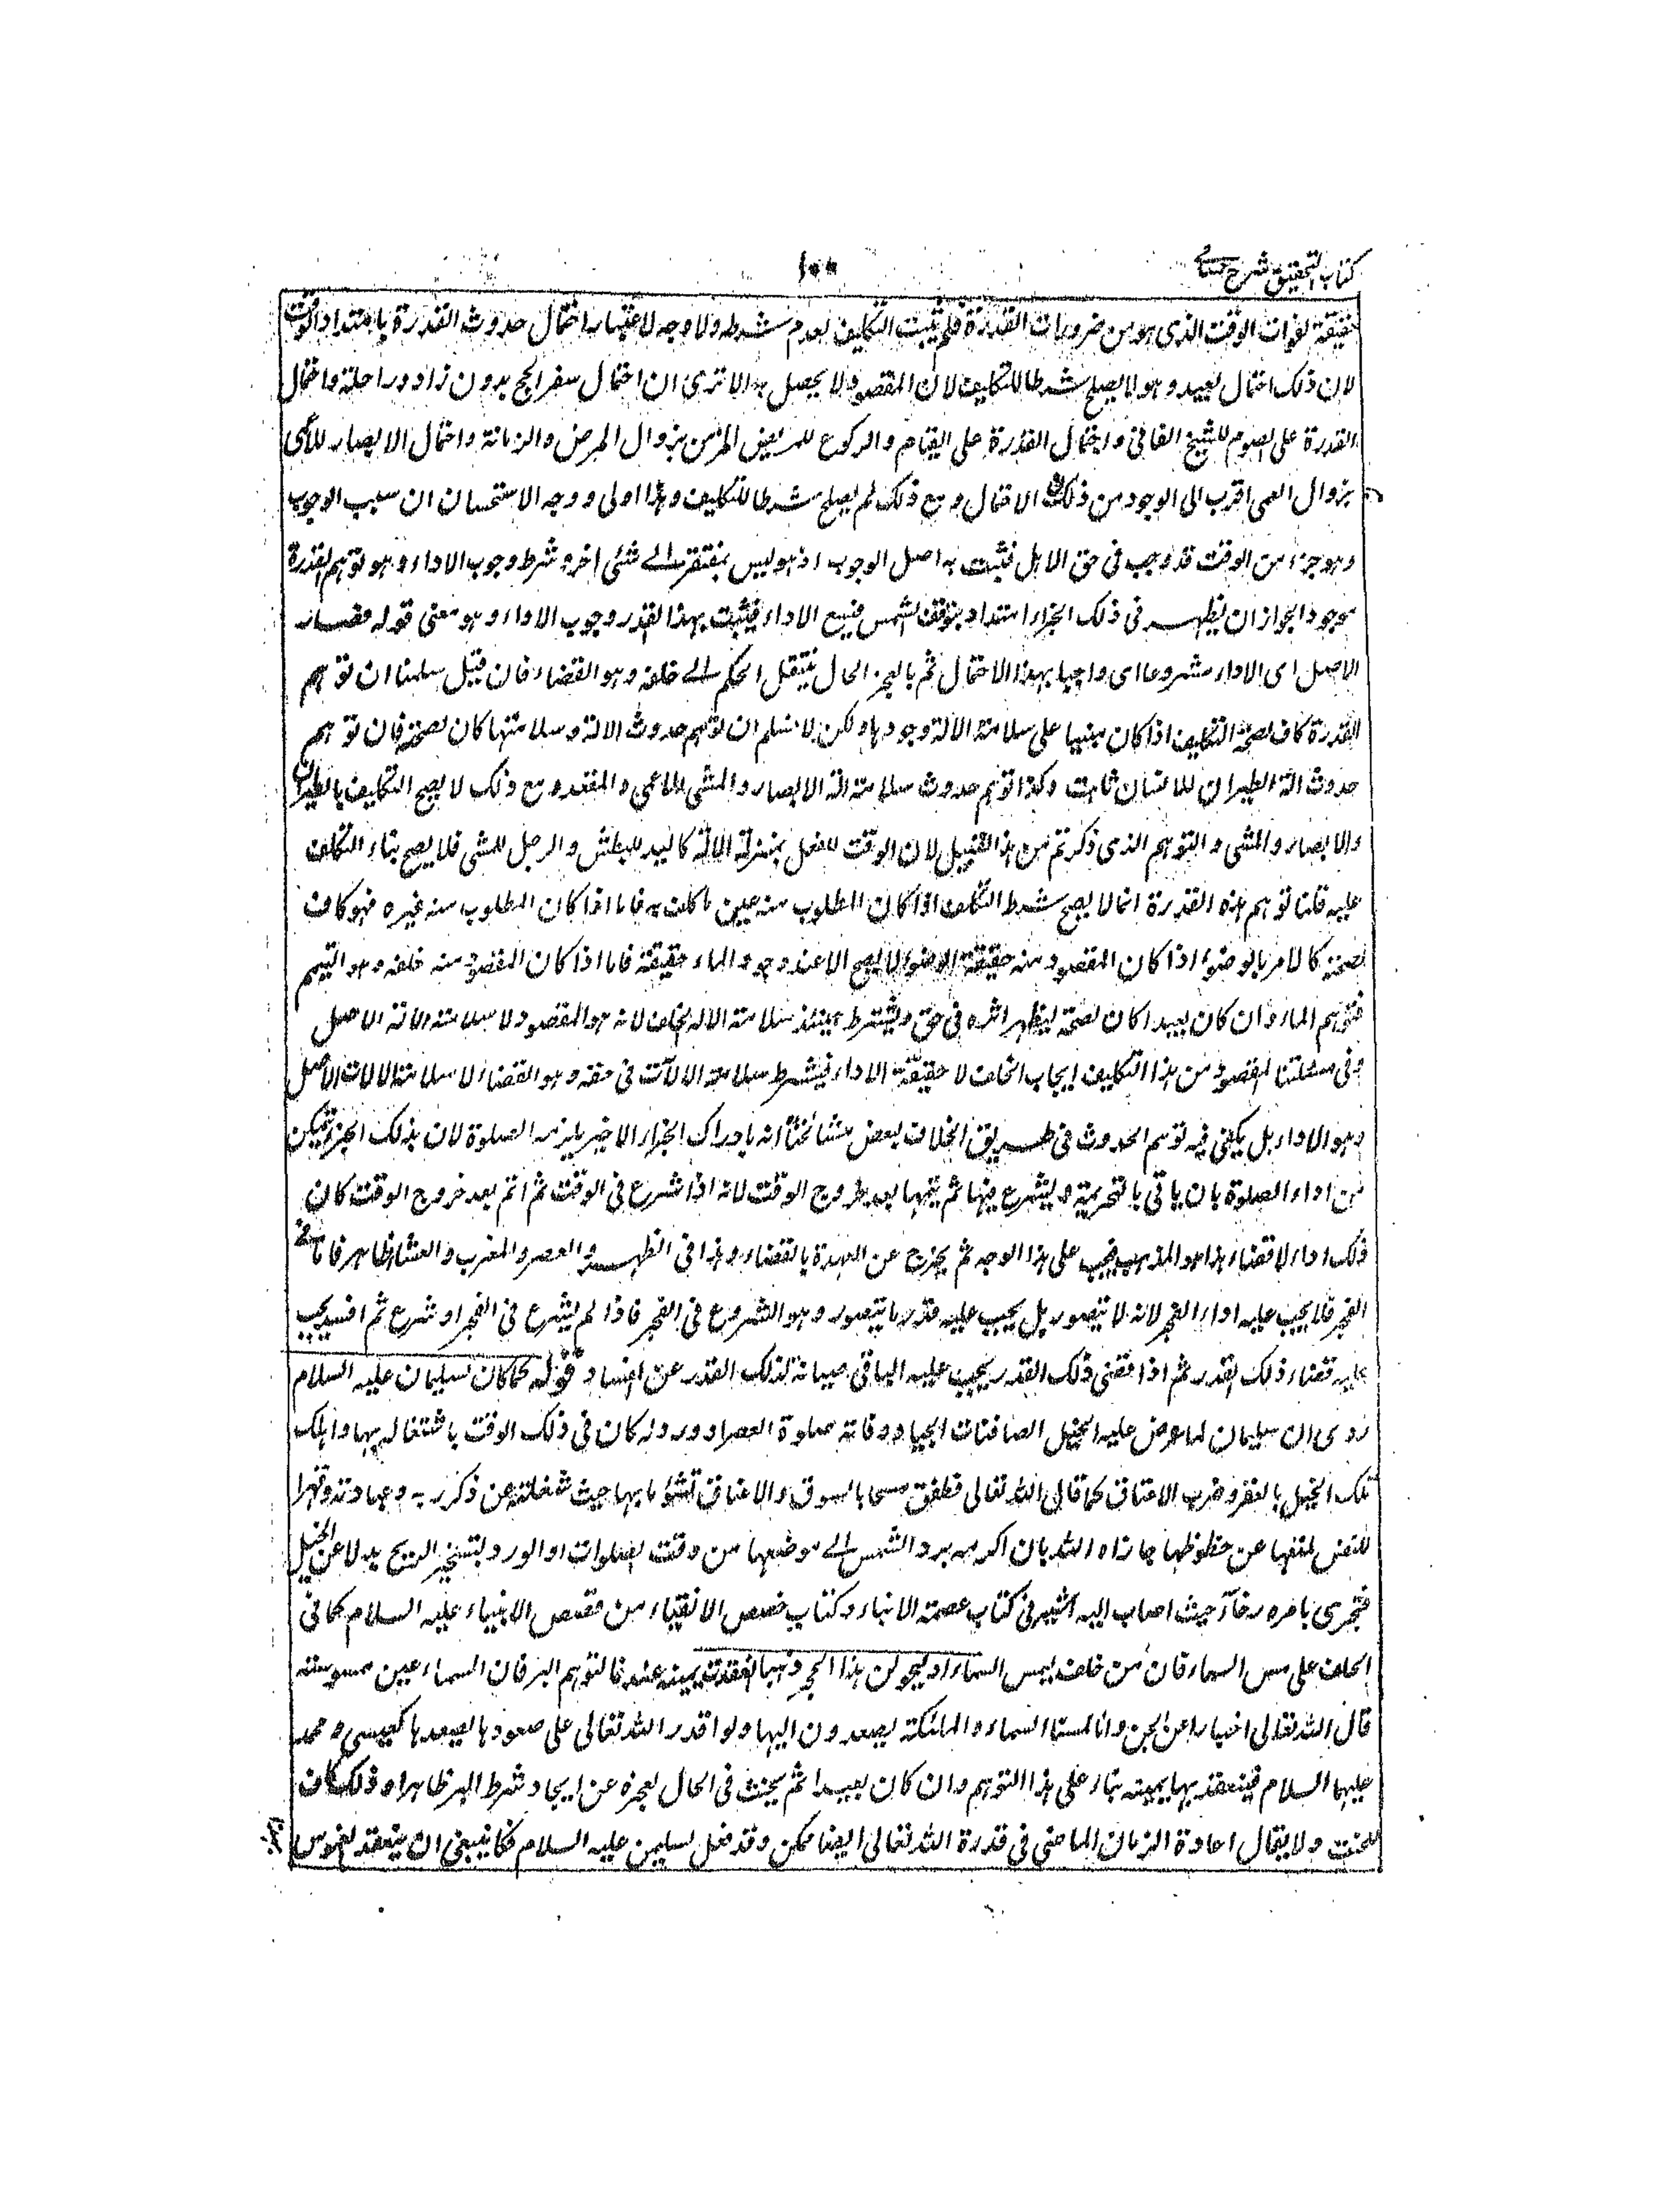 كتاب التحقيق شرح حسامي
١٠٠
حقيقة لفوات الوقت الذى هو من ضرورات القدرة فلم يثبت التكليف لعدم شرطه ولا وجه لاعتبار احتمال حدوث القدرة بامتداد الوقت
لان ذلك احتمال بعيد وهو لا يصلح شرطا للتكليف لان المقصود لا يحصل به الا ترى ان احتمال سفر الحج بدون زاد وراحلة واحتمال
القدرة على الصوم للشيخ الفانى واحتمال القدرة على القيام والركوع للمريض المزمن بزوال المرض والزمانة واحتمال الابصار للاعمى
بزوال العمى اقرب الى الوجود من ذلك الاحتمال ومع ذلك لم يصلح شرطا للتكليف وهذا اولى ووجه الاستحسان ان سبب الوجوب
وهو جزء من الوقت قد وجب فى حق الاهل فثبت به اصل الوجوب اذ هو ليس بمفتقر الى شئى اخر وشرط وجوب الاداء وهو توهم القدرة
موجود الجواز ان يظهر فى ذلك الجزء امتداد بتوقف الشمس فيسع الاداء فيثبت بهذا القدر وجوب الاداء وهو معنى قوله فصار
الاصل اى الاداء مشروعا اى واجبا بهذا الاحتمال ثم بالعجز الحال ينتقل الحكم الى خلفه وهو القضاء فان قيل سلمنا ان توهم
القدرة كاف لصحة التكليف اذا كان مبنيا على سلامة الآلة وجودها ولكن لا نسلم ان توهم حدوث الالة وسلامتها كان لصحته فان توهم
حدوث الة الطيران للانسان ثابت وكذا توهم حدوث سلامة الة الابصار والمشى للاعمى والمقعد ومع ذلك لا يصح التكليف بالطيران
والابصار والمشى والتوهم الذى ذكرتم من هذا القبيل لان الوقت للفعل بمنزلة الالة كاليد للبطش والرجل للمشى فلا يصح بناء التكلف
عليه قلنا توهم هذه القدرة انما لا يصح شرط التكلف اذا كان المطلوب منه عين ما كلف به فاما اذا كان المطلوب منه غيره فهو كاف
لصحته كالامر بالوضوء اذا كان المقصود منه حقيقة الوضوء لا يصح الا عند وجود الماء حقيقة فاما اذا كان المقصود منه خلفه وهو التيمم
فتوهم الماء وان كان بعيدا كان لصحته ليظهر اثره فى حق ويشترط حينئذ سلامة الالة الخلف لانه هو المقصود لا سلامة الالة الاصل
وفى مسئلتنا المقصود من هذا التكليف ايجاب الخلف لا حقيقة الاداء فيشترط سلامة الالآت فى حقه وهو القضاء لا سلامة الالات الاصل
وهو الاداء بل يكفى فيه توهم الحدوث فى طريق الخلاف لبعض مشائخنا انه بادراك الجزء الاخير يلزمه الصلوة لان بذلك الجزء يتمكن
من اداء الصلوة بان ياتى بالتحريمة ويشرع فيها ثم يتمها بعد خروج الوقت لانه اذا شرع فى الوقت ثم اتم بعد خروج الوقت كان
ذلك اداء لا قضاء هذا هو المذهب فيجب على هذا الوجه ثم يخرج عن العهدة بالقضاء وهذا فى الظهر والعصر والمغرب والعشا ظاهر فاما فى
الفجر فلا يجب عليه اداء الفجر لانه لا يتصور بل يجب عليه قدر ما يتصور وهو الشروع فى الفجر فاذا لم يشرع فى الفجر او شرع ثم افسد يجب
عليه قضاء ذلك القدر ثم اذا قضى ذلك القدر يجب عليه الباقى صيانة لذلك القدر عن افساد قوله كما كان لسليمان عليه السلام
روى ان سليمان لما عرض عليه الخيل الصافنات الجياد وفاته صلوة العصر او ورد له كان فى ذلك الوقت باشتغاله بها واهلك
تلك الخيل بالعقر وضرب الاعناق كما قال الله تعالى فطفق مسحا بالسوق والاعناق تشؤما بها حيث شغلته عن ذكر ربه وعبادته وقهرا
للنفس لمنعها عن حظوظها جازاه الله بان اكرمه برد الشمس الى موضعها من وقت الصلوات او الورد وبتسخير الريح بدلا عن الخيل
فتجرى بامره رخاء حيث اصاب اليه اشير فى كتاب عصمة الانبياء وكتاب حصص الاتقياء من قصص الانبياء عليه السلام كما فى
الحلف على مس السماء فان من حلف ليمس السماء او ليحولن هذا الحجر ذهبا انعقدت يمينه عندنا لتوهم البر فان السماء عين ممسوسته
قال الله تعالى اخبارا عن الجن وانا لمسنا السماء والملئكة يصعدون اليها ولو اقدر الله تعالى على صعودها يصعدها كعيسى ومحمد
عليهما السلام فينعقد بها يمينه بناء على هذا التوهم وان كان بعيدا ثم يحنث فى الحال لعجزه عن ايجاد شرط البر ظاهرا وذلك كاف
للحنث ولا يقال اعادة الزمان الماضى فى قدرة الله تعالى ايضا ممكن وقد فعل لسليمن عليه السلام فكان ينبغى ان ينعقد الغموس